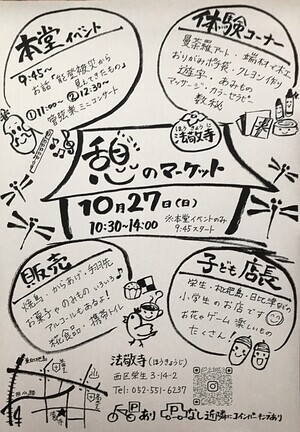 本堂イベント
9:45〜
お話「能登被災から
見えてきたもの」
①11:00〜 ②12:30〜
管弦楽ミニコンサート
体験コーナー
曼荼羅アート・端材で木工
おりがみ
クレヨン作り
遊字・あみもの
マッサージ・カラーセラピー
数珠
(ほうきょうじ)
法敬寺
憩のマーケット
10月27日(日)
10:30〜14:00
※本堂イベントのみ
9:45スタート
販売
焼鳥・からあげ・手羽先
お菓子やのみもの、いろいろ♪
アルコールもあるよ!
和食品・携帯トイレ
子ども店長
栄生・枇杷島・日比津などの
小学生のお店です
お花やゲーム楽しいもの
たくさん
法敬寺(ほうきょうじ)
西区栄生3-14-2
Tel:052-551-6237
あり
なし
近隣にコインパーキングあり